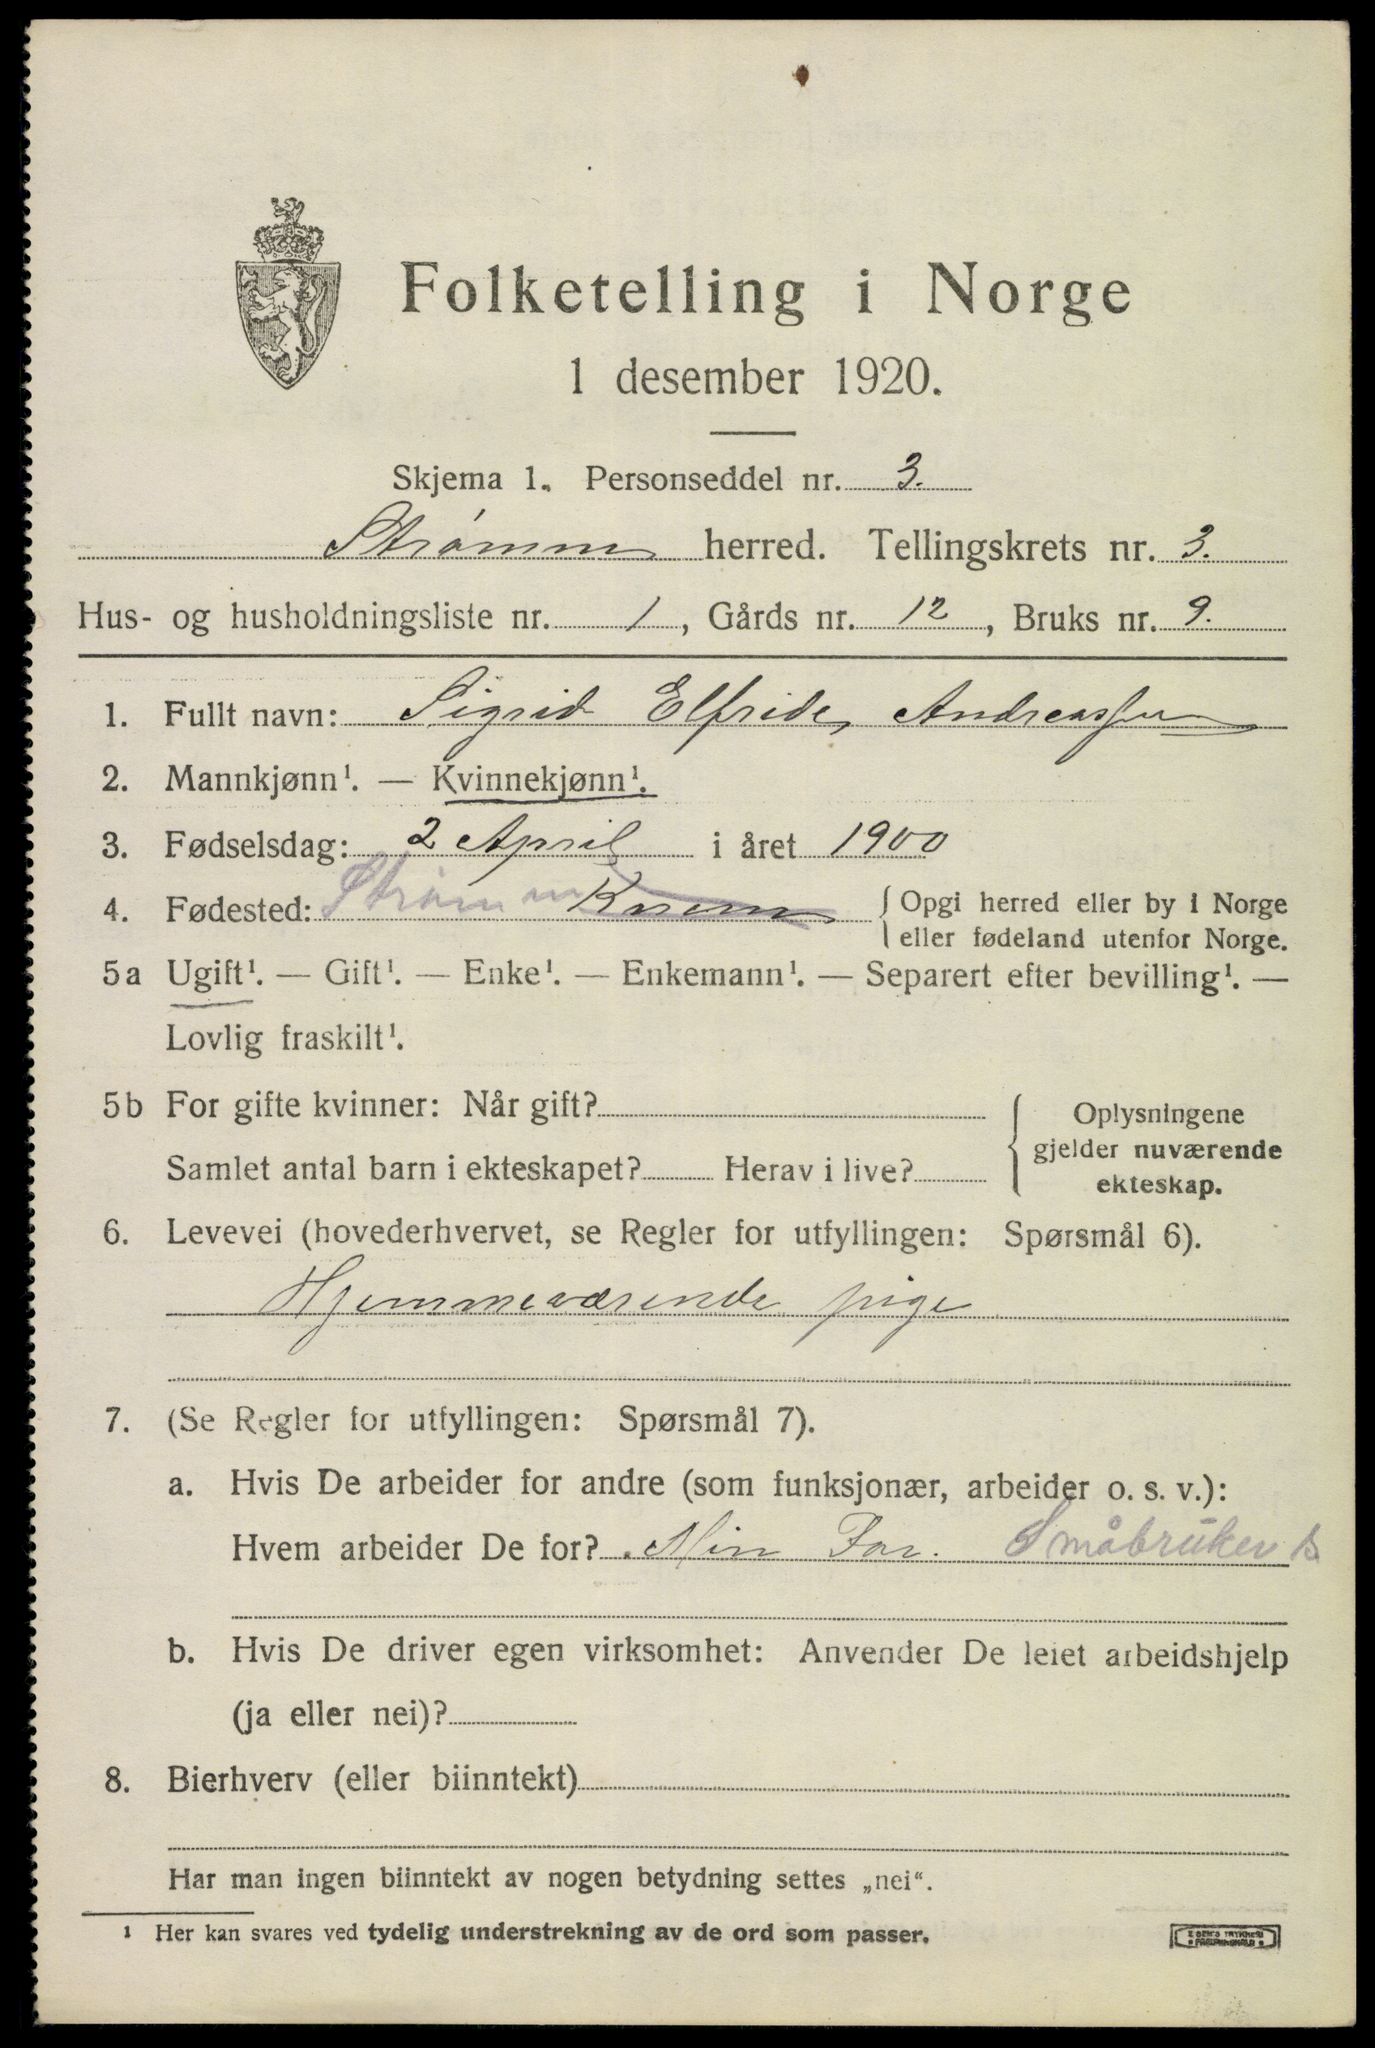 Folketelling i Norge
1 desember 1920.
Skjema 1. Personseddel nr. 3.
Strømm herred. Tellingskrets nr. 3.
Hus- og husholdningsliste nr. 1, Gårds nr. 12, Bruks nr. 9.
1. Fullt navn: Sigrid Elfride Andreassen
2. Mannkjønn¹. — Kvinnekjønn¹.
3. Fødselsdag: 2 April i året 1900
4. Fødested: Strømm { Opgi herred eller by i Norge
eller fødeland utenfor Norge.
5a Ugift¹. — Gift¹. — Enke¹. — Enkemann¹. — Separert efter bevilling¹. —
Lovlig fraskilt¹.
5b For gifte kvinner: Når gift? { Oplysningene
gjelder nuværende
Samlet antal barn i ekteskapet? Herav i live? ekteskap.
6. Levevei (hovederhvervet, se Regler for utfyllingen: Spørsmål 6).
Hjemmeværende pige
7. (Se Regler for utfyllingen: Spørsmål 7).
a. Hvis De arbeider for andre (som funksjonær, arbeider o. s. v.):
Hvem arbeider De for? Min Far. Småbruker
b. Hvis De driver egen virksomhet: Anvender De leiet arbeidshjelp
(ja eller nei)?
8. Bierhverv (eller biinntekt)
Har man ingen biinntekt av nogen betydning settes „nei“.
¹ Her kan svares ved tydelig understrekning av de ord som passer.